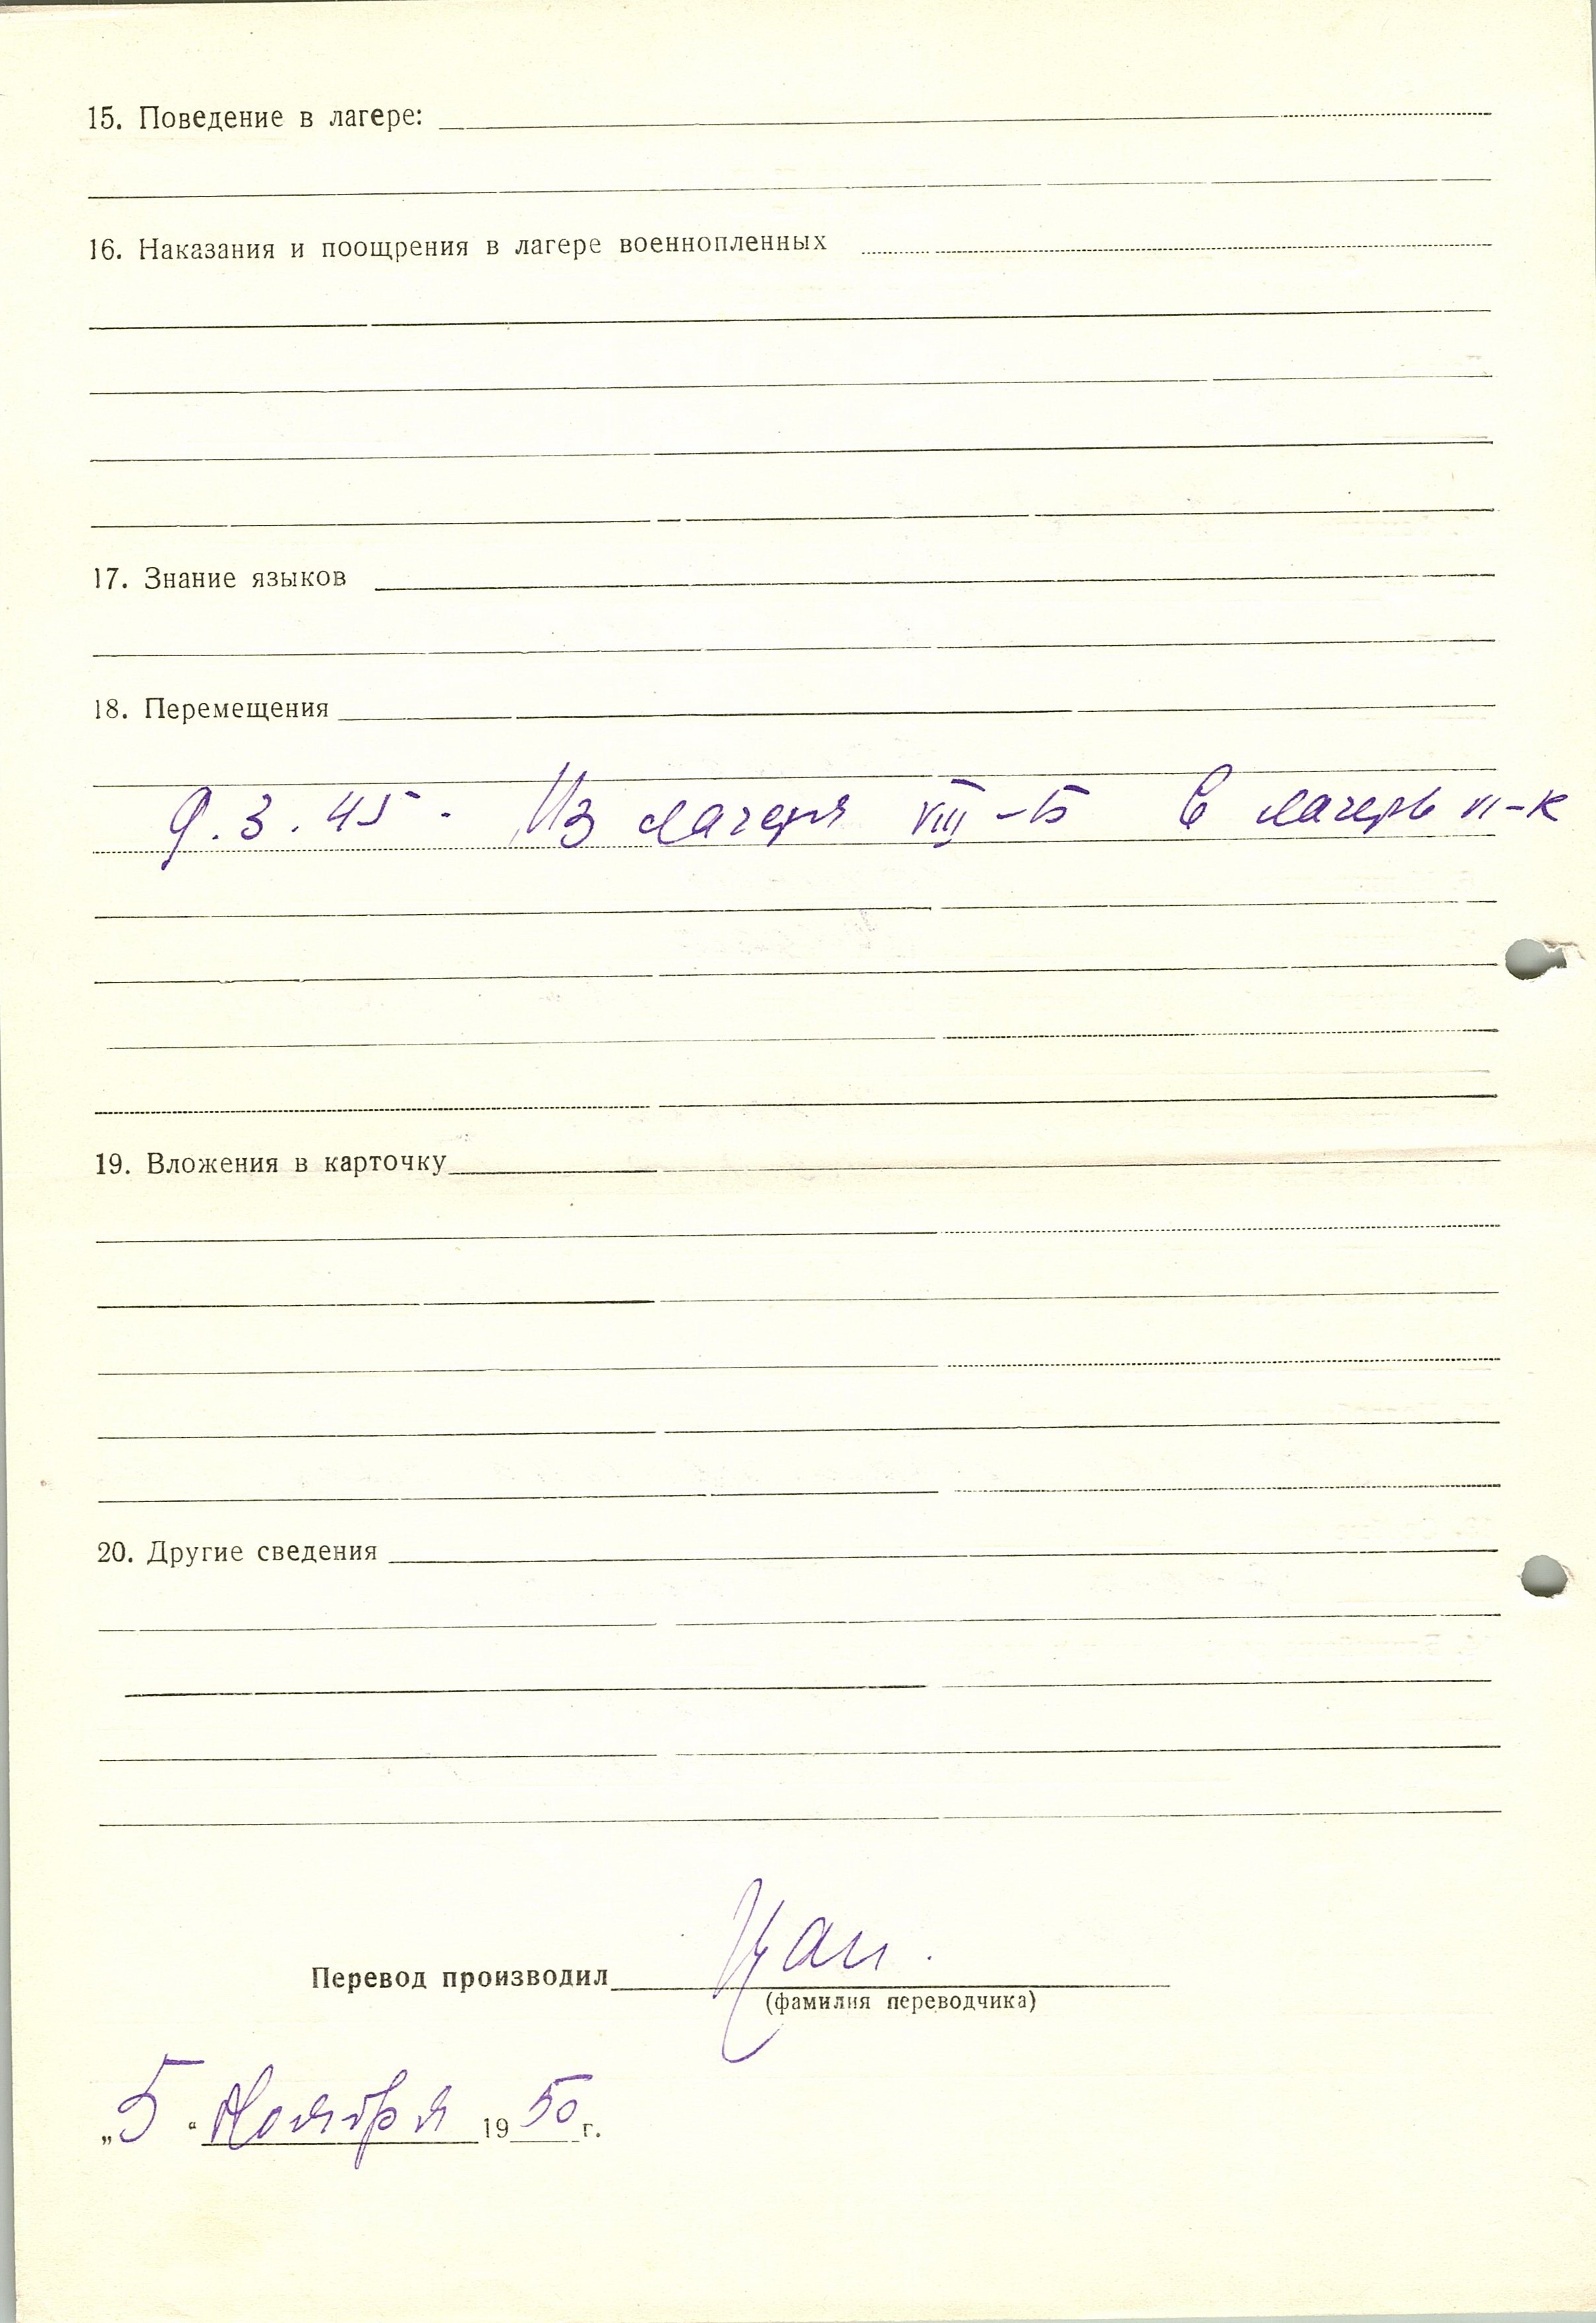 15. Поведение в лагере:
16. Наказания и поощрения в лагере военнопленных
17. Знание языков
18. Перемещения
9. 3. 45 - Из лагеря VIII-Б в лагерь VI-К
19. Вложения в карточку
20. Другие сведения
Перевод производил
(фамилия переводчика)
„5“ Ноября 1950 г.